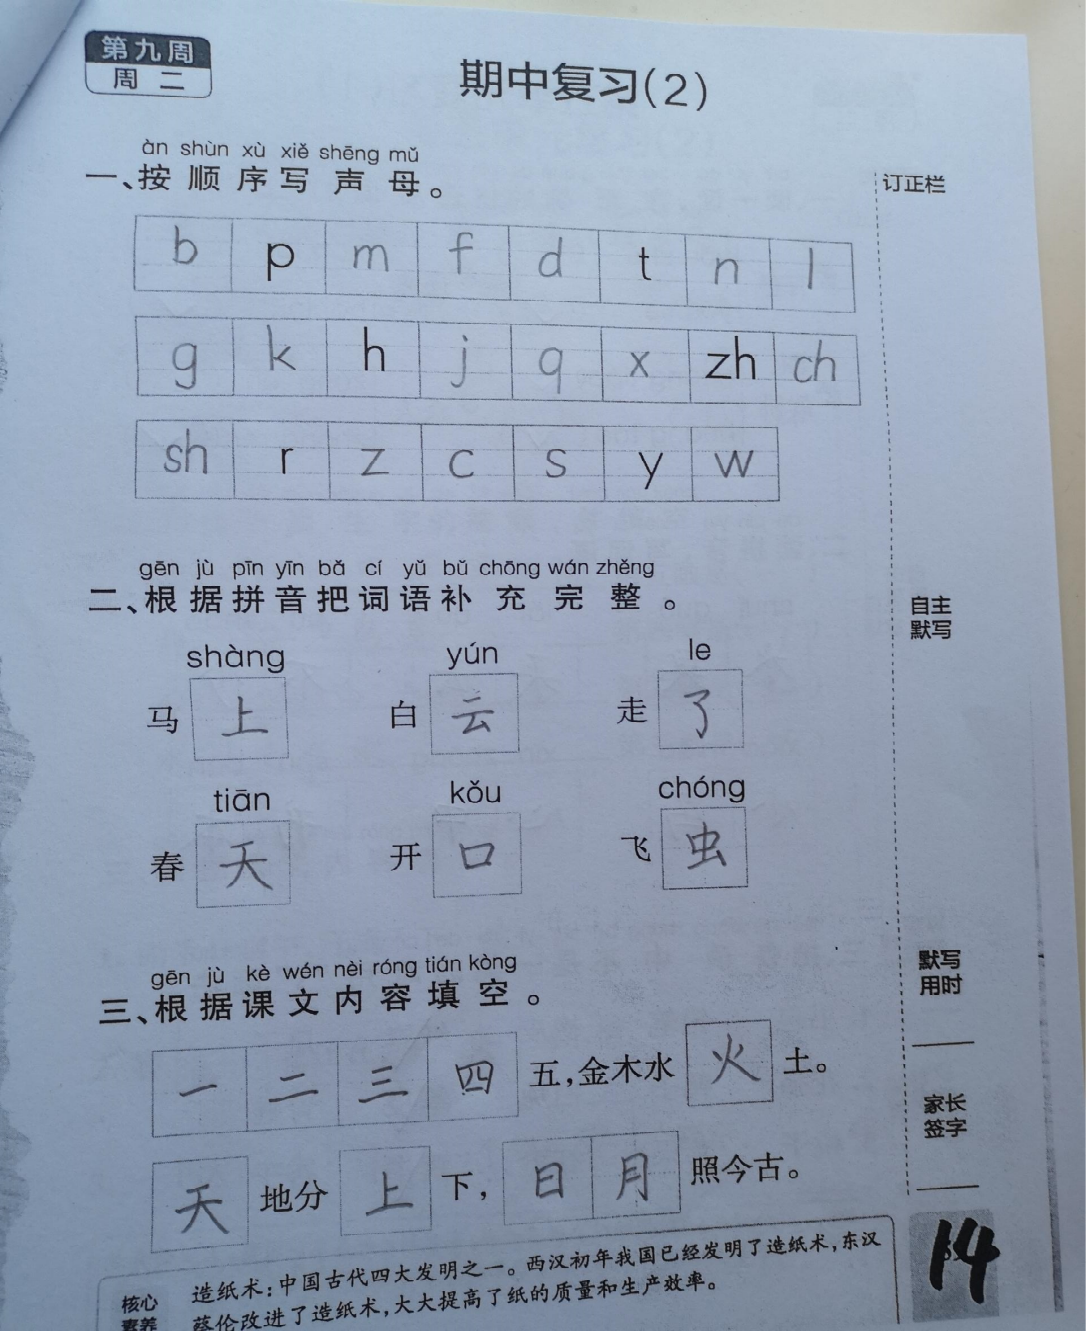 第九周
周二
期中复习(2)
àn shùn xù xiě shēng mǔ
一、按顺序写声母。
订正栏
b p m f d t n l
g k h j q x zh ch
sh r z c s y w
gēn jù pīn yīn bǎ cí yǔ bǔ chōng wán zhěng
二、根据拼音把词语补充完整。
自主
默写
shàng yún le
马 上 白 云 走 了
tiān kǒu chóng
春 天 开 口 飞 虫
gēn jù kè wén nèi róng tián kòng
三、根据课文内容填空。
默写
用时
一 二 三 四 五,金木水 火 土。
家长
签字
天 地分 上 下, 日 月 照今古。
14
核心
素养
造纸术:中国古代四大发明之一。西汉初年我国已经发明了造纸术,东汉
蔡伦改进了造纸术,大大提高了纸的质量和生产效率。